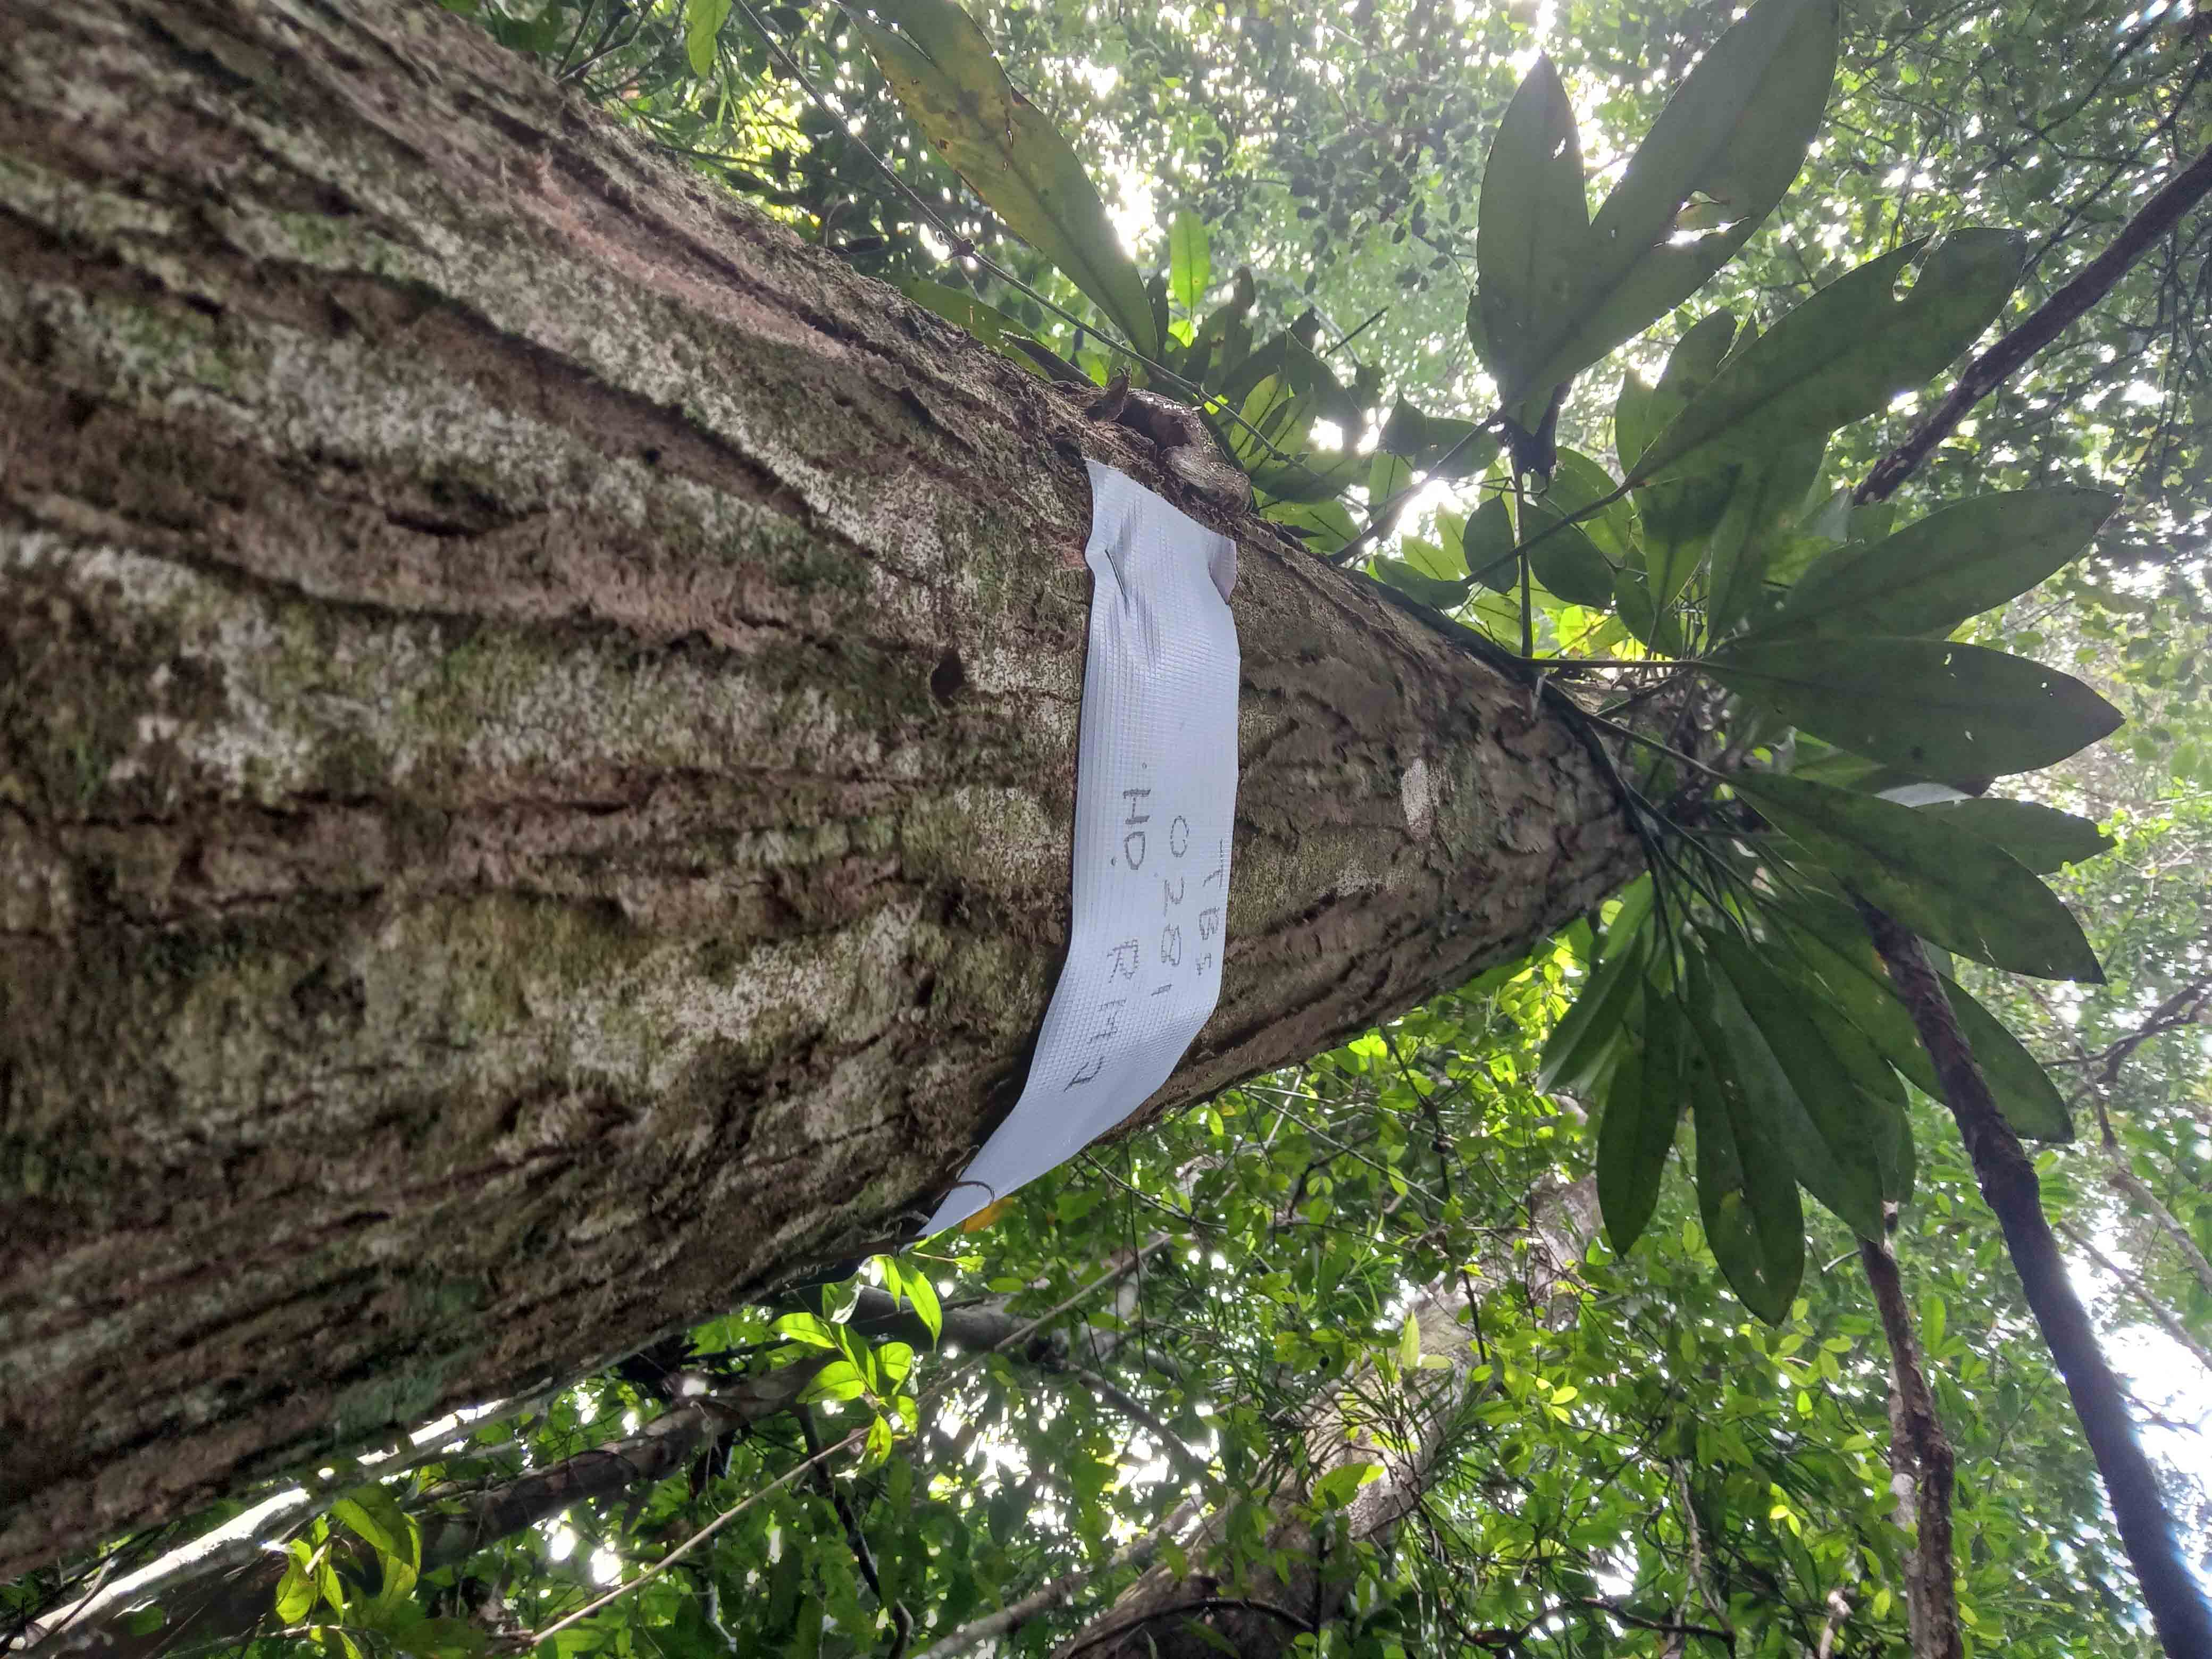 TBS
0281
HD RHJ